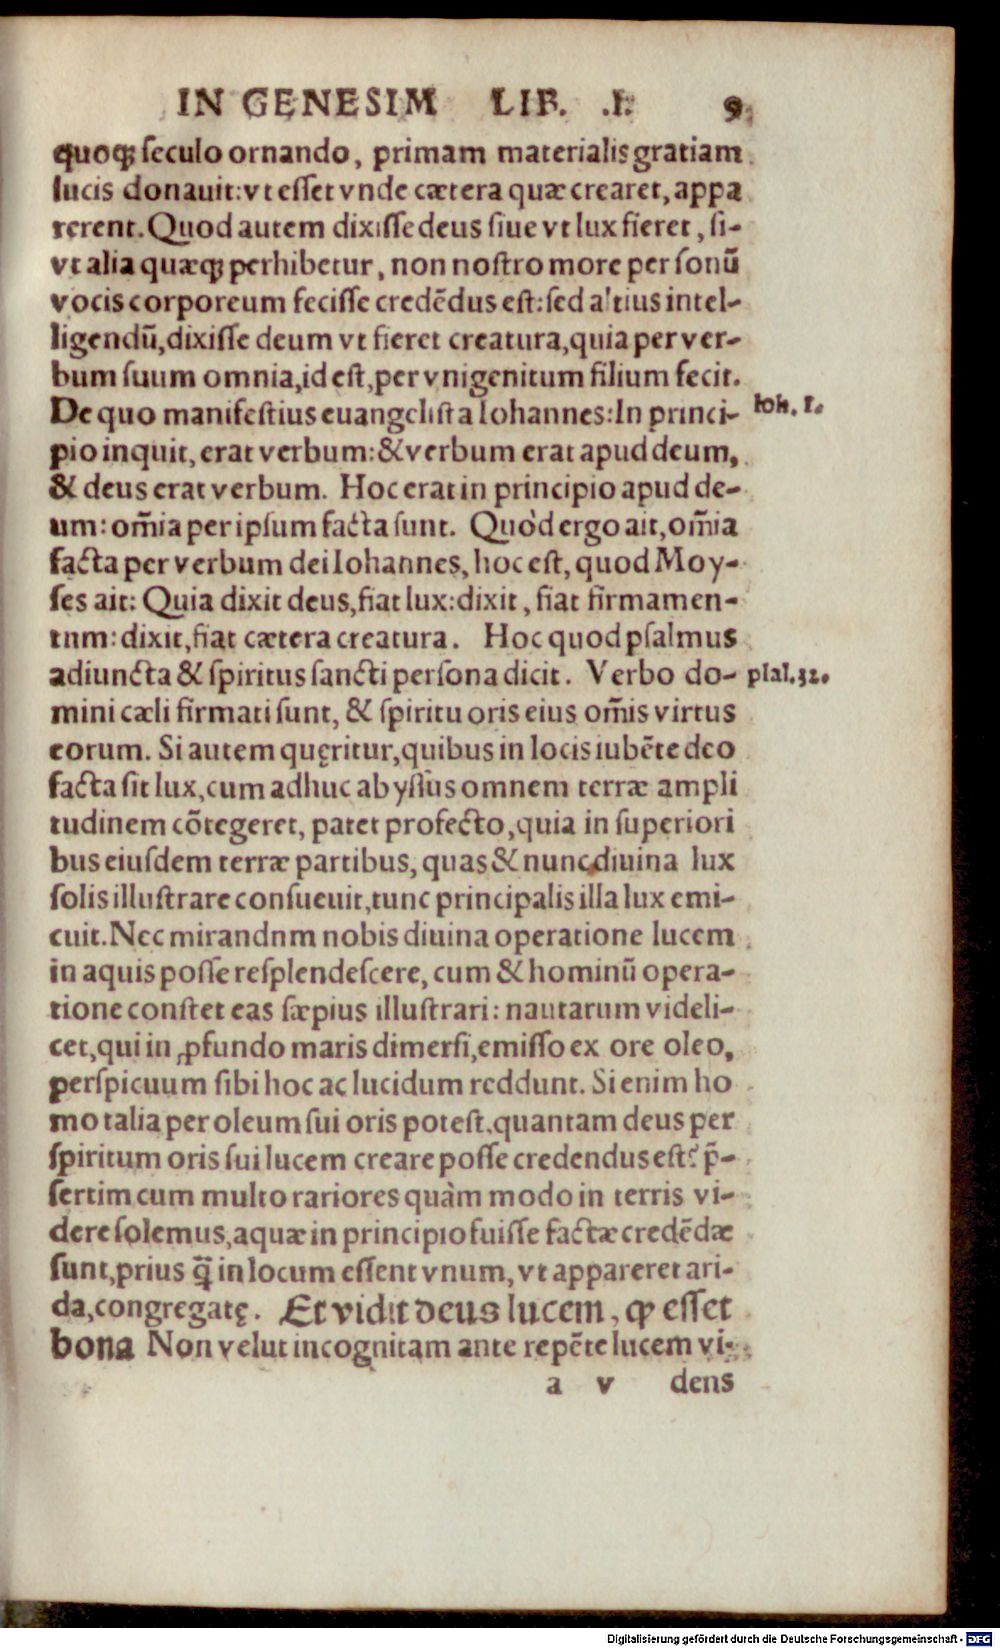 IN GENESIM LIB. .I. 9
quoq; ſeculo ornando, primam materialis gratiam
lucis donauit: vt eſſet vnde cætera quæ crearet, appa
rerent. Quod autem dixiſſe deus ſiue vt lux fieret, ſi-
vt alia quæq; perhibetur, non noſtro more per ſonũ
vocis corporeum feciſſe credẽdus eſt: ſed altius intel-
ligendũ, dixiſſe deum vt fieret creatura, quia per ver-
bum ſuum omnia, id eſt, per vnigenitum filium fecit.
De quo manifeſtius euangeliſta Iohannes: In princi-
Ioh. 1.
pio inquit, erat verbum: & verbum erat apud deum,
& deus erat verbum. Hoc erat in principio apud de-
um: om̃ia per ipſum facta ſunt. Quòd ergo ait, om̃ia
facta per verbum dei Iohannes, hoc eſt, quod Moy-
ſes ait: Quia dixit deus, fiat lux: dixit, fiat firmamen-
tnm: dixit, fiat cætera creatura. Hoc quod pſalmus
adiuncta & ſpiritus ſancti perſona dicit. Verbo do-
pſal. 32.
mini cæli firmati ſunt, & ſpiritu oris eius om̃is virtus
eorum. Si autem quęritur, quibus in locis iubẽte deo
facta ſit lux, cum adhuc abyſſus omnem terræ ampli
tudinem cõtegeret, patet profecto, quia in ſuperiori
bus eiuſdem terræ partibus, quas & nunc diuina lux
ſolis illuſtrare conſueuit, tunc principalis illa lux emi-
cuit. Nec mirandnm nobis diuina operatione lucem
in aquis poſſe reſplendeſcere, cum & hominũ opera-
tione conſtet eas ſæpius illuſtrari: nautarum videli-
cet, qui in ꝓfundo maris dimerſi, emiſſo ex ore oleo,
perſpicuum ſibi hoc ac lucidum reddunt. Si enim ho
mo talia per oleum ſui oris poteſt, quantam deus per
ſpiritum oris ſui lucem creare poſſe credendus eſt? p̃-
ſertim cum multo rariores quàm modo in terris vi-
dere ſolemus, aquæ in principio fuiſſe factæ credẽdæ
ſunt, prius q̃ in locum eſſent vnum, vt appareret ari-
da, congregatę. Et vidit deus lucem, ꝙ eſſet
bona Non velut incognitam ante repẽte lucem vi-
a v dens
Digitalisierung gefördert durch die Deutsche Forschungsgemeinschaft - DFG